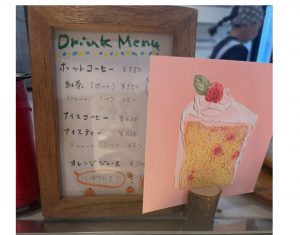 Drink Menu
ホットコーヒー ¥550
紅茶（ホット） ¥550
ストレート ミルク レモン
アイスコーヒー ¥600
アイスティー ¥600
ストレート ミルク レモン
オレンジジュース